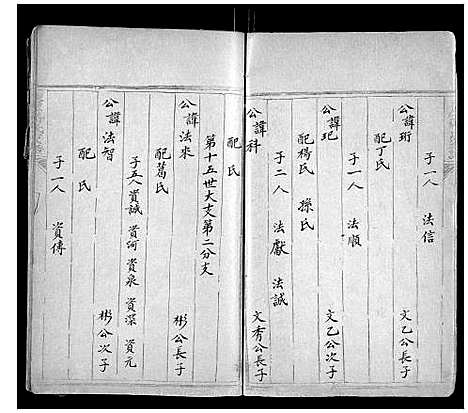 子一人 法信
公諱珩 文乙公長子
配丁氏
子一人 法順
公諱玘 文乙公次子
配楊氏 孫氏
子二人 法獻 法誠
公諱科 文秀公長子
配 氏
第十五世大支第二分支
公諱法來 彬公長子
配葛氏
子五人 資誠 資河 資泉 資深 資元
公諱法智 彬公次子
配 氏
子一人 資傳